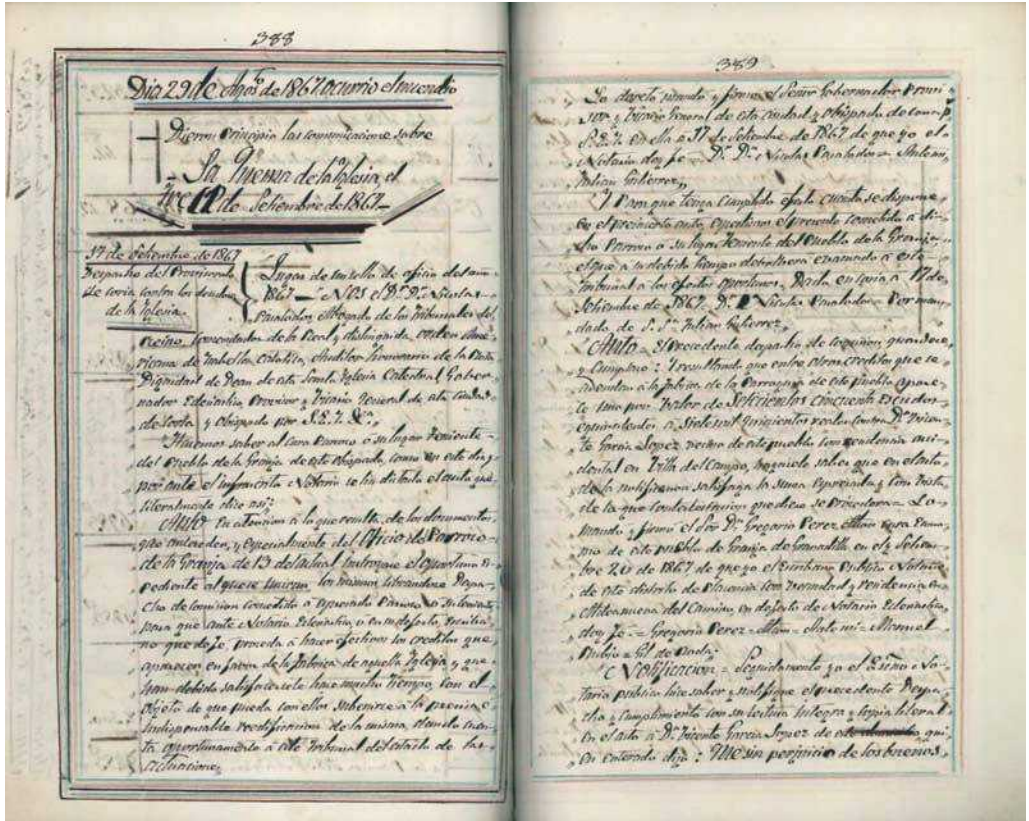 388
Dia 29 de Agos de 1867 ocurrio el incendio
Dieron principio las comunicaciones sobre
La Quema de la Iglesia, el
de Setiembre de 1867
17 de Setiembre de 1867
Despacho del Provisorato
de Coria contra los deudores
de la Iglesia.
Lugar de un sello de oficio del año
1867 — Nos el Dr. Dn. Nicolas
Abogado de los tribunales del
Reino, Comendador de la Real y distinguida orden Ame-
ricana de Isabel la Catolica, Auditor honorario de la
Dignidad de Dean de esta Santa Iglesia Catedral, Gober-
nador Eclesiastico, Provisor y Vicario General de esta Ciudad
de Coria y Obispado por S.E.Y. &c.
Hacemos saber al Cura Parroco o su lugar teniente
del Pueblo de la Granja de este Obispado, como en este dia y
por ante el infrascrito Notario se ha dictado el auto que
literalmente dice asi:
Auto En atencion a lo que resulta de los documentos
que anteceden, y especialmente del Oficio del Parroco
de la Granja de 13 del actual, instruyase el oportuno Es-
pediente al que se uniran los mismos librandose Despa-
cho de comision cometido a espresado Parroco o su teniente
para que ante Notario Eclesiastico, o en su defecto, Escriba-
no que de fe, proceda a hacer efectivos los creditos que
aparecen en favor de la fabrica de aquella Iglesia y que
han debido satisfacersele hace mucho tiempo, con el
objeto de que pueda con ellos subenirse a la precisa e
indispensable reedificacion de la misma, dando cuen-
ta oportunamente a este Tribunal del estado de las
actuaciones
389
Lo decretó mandó y firmó el Señor Gobernador Provi-
sor y Vicario General de esta ciudad y Obispado de Coria por
S.E.Y. en ella a 17 de Setiembre de 1867 de que yo el
Notario doy fe — Dr. Dn. Nicolas = Antemi,
Julian Gutierrez,,
Y Para que tenga cumplido efecto cuanto se dispone
en el preinserto auto, espedimos el presente cometido a di-
cho Parroco o su lugar teniente del Pueblo de la Granja
el que a su debido tiempo debolvera evacuado a este
tribunal a los efectos oportunos. Dado en Coria a 17 de
Setiembre de 1867. Dr. Nicolas Por man-
dado de S. Sa. Julian Gutierrez,
Auto = El precedente despacho de comision, guardese
y cumplase: Y resultando que entre otros creditos que se
adeudan a la fabrica de la Parroquia de este pueblo apare-
ce uno por valor de Setecientos cincuenta Escudos
equivalentes a Siete mil quinientos reales contra Dn. Vicen-
te Garcia Lopez vecino de este pueblo con residencia acci-
dental en Villa del Campo, hagasele saber que en el acto
de la notificacion satisfaga la suma espresada y con vista
de la que contestacion que diese se procedera = Lo
mandó y firmó el Sor Dn. Gregorio Perez Cura Parro-
co de este pueblo de Granja de Granadilla en el y Setiem-
bre 20 de 1867 de que yo el Escribano Publico y Notario
de este distrito de Plasencia con vecindad y residencia en
Aldeanueva del Camino, en defecto de Notario Eclesiastico,
doy fe. = Gregorio Perez = Antemi = Manuel
Rubio = Gil de
Notificacion = Seguidamente yo el Esno y No-
tario publico hice saber y notifique el precedente Despa-
cho y Cumplimiento con su lectura integra y copia literal
en el acto a Dn. Vicente Garcia Lopez de este qui-
en enterado dijo: Que sin perjuicio de los buenos